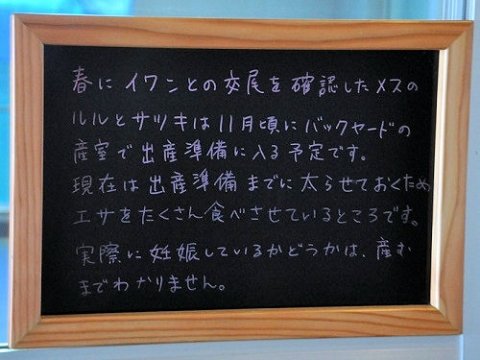 春にイワンとの交尾を確認したメスの
ルルとサツキは11月頃にバックヤードの
産室で出産準備に入る予定です。
現在は出産準備までに太らせておくため
エサをたくさん食べさせているところです。
実際に妊娠しているかどうかは、産む
までわかりません。